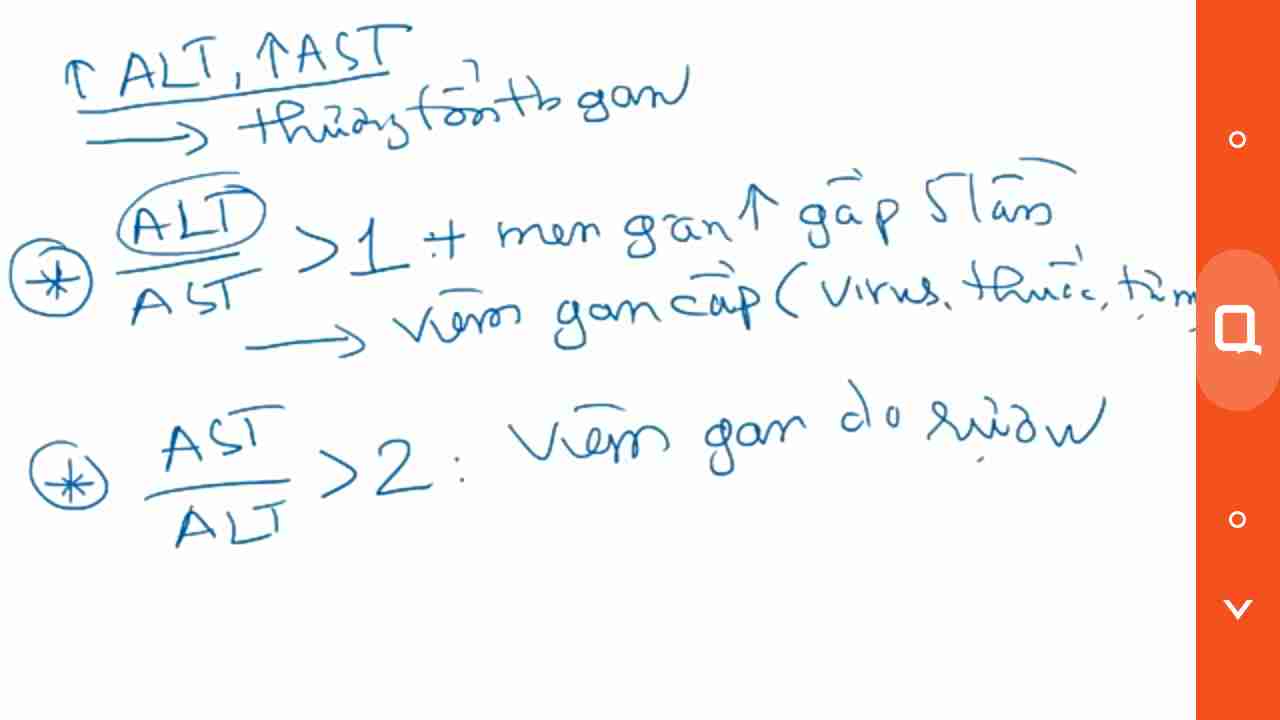 ↑ ALT, ↑AST
→ thương tổn tb gan
* ALT/AST > 1 + men gan ↑ gấp 5 lần
→ viêm gan cấp (virus, thuốc,
* AST/ALT > 2 : viêm gan do rượu